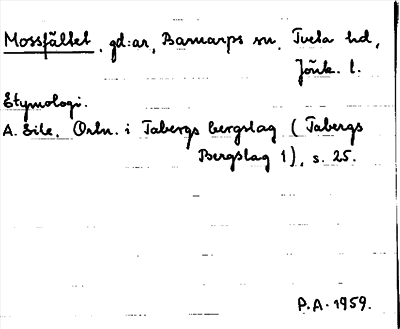 Mossfältet, gd:ar, Barnarps sn, Tveta hd,
Jönk. l.
Etymologi.
A. Eile, Ortn. i Tabergs bergslag (Tabergs
Bergslag 1), s. 25.
P.A. 1959.